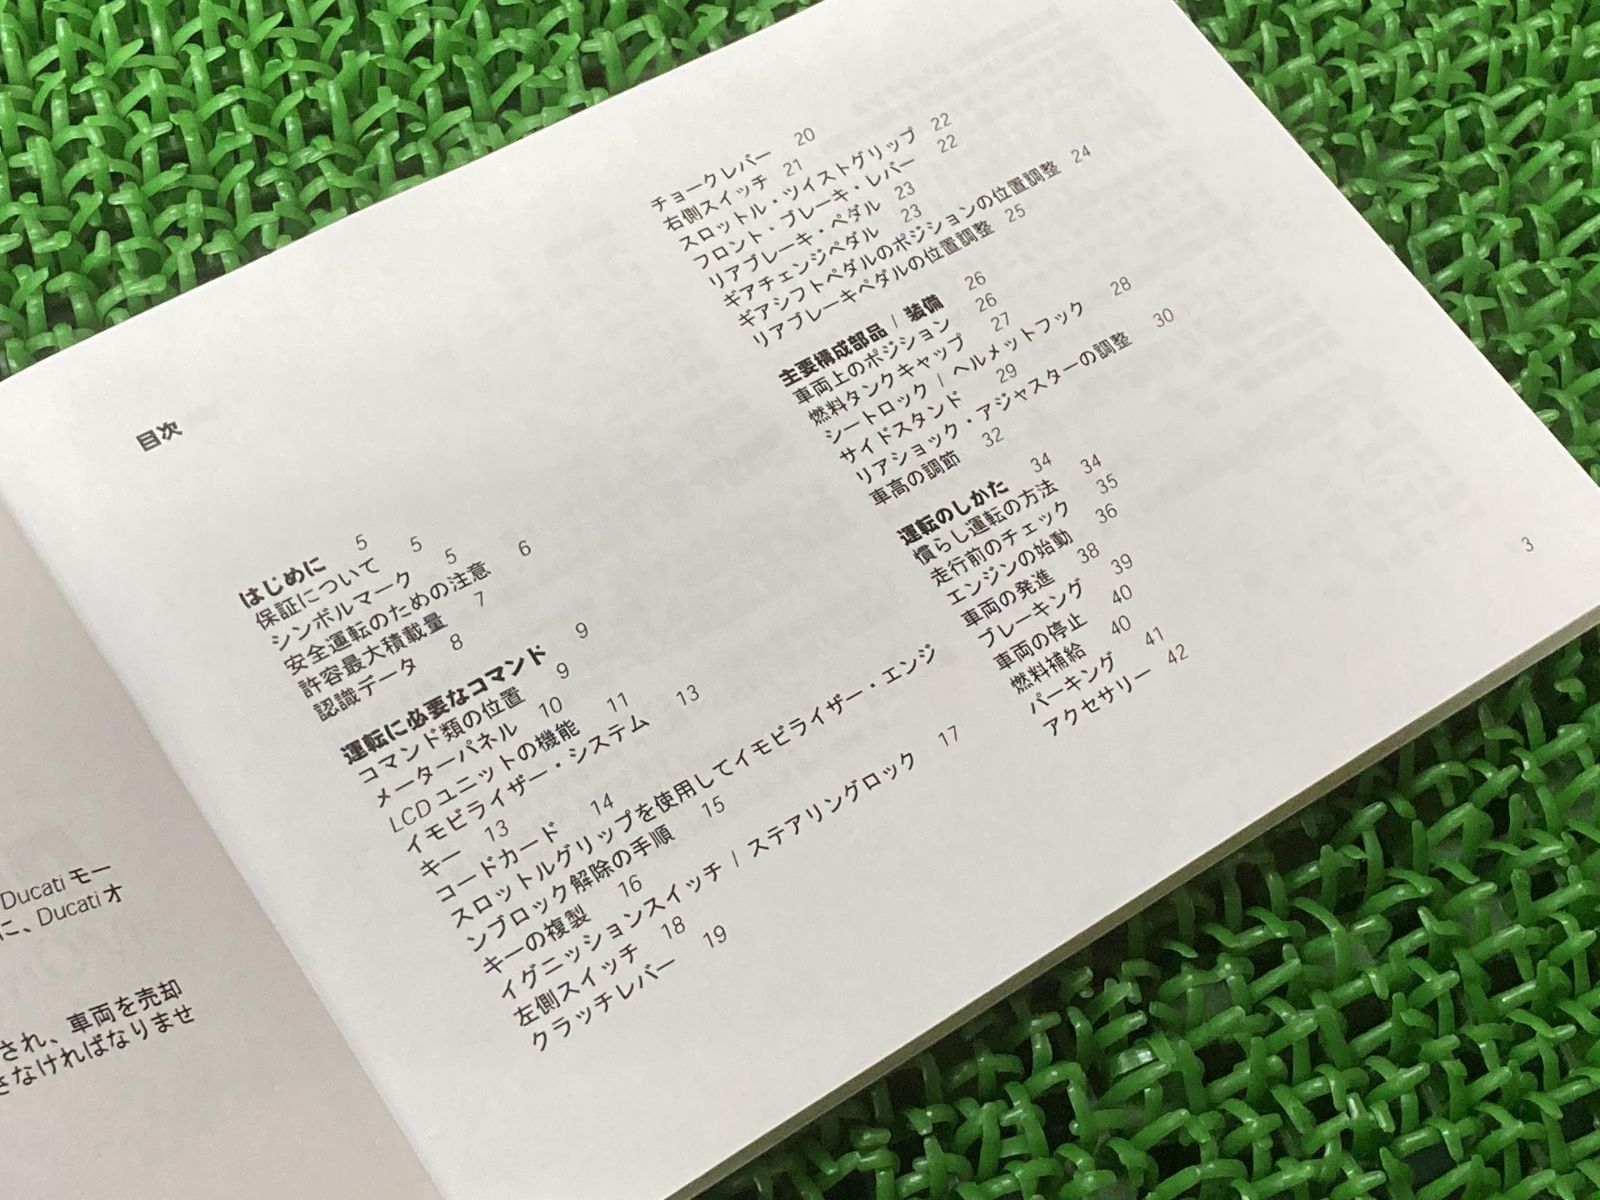 Ducati モー
に、Ducati オ
され、車両を売却
さなければなりませ
目次
はじめに 5
保証について 5
シンボルマーク 5
安全運転のための注意 6
許容最大積載量 7
認識データ 8
運転に必要なコマンド 9
コマンド類の位置 9
メーターパネル 10
LCD ユニットの機能 11
イモビライザー・システム 13
キー 13
コードカード 14
スロットルグリップを使用してイモビライザー・エンジ
ンブロック解除の手順 15
キーの複製 16
イグニッションスイッチ / ステアリングロック 17
左側スイッチ 18
クラッチレバー 19
チョークレバー 20
右側スイッチ 21
スロットル・ツイストグリップ 22
フロント・ブレーキ・レバー 22
リアブレーキ・ペダル 23
ギアチェンジペダル 23
ギアシフトペダルのポジションの位置調整 24
リアブレーキペダルの位置調整 25
主要構成部品 / 装備 26
車両上のポジション 26
燃料タンクキャップ 27
シートロック / ヘルメットフック 28
サイドスタンド 29
リアショック・アジャスターの調整 30
車高の調節 32
運転のしかた 34
慣らし運転の方法 34
走行前のチェック 35
エンジンの始動 36
車両の発進 38
ブレーキング 39
車両の停止 40
燃料補給 40
パーキング 41
アクセサリー 42
3